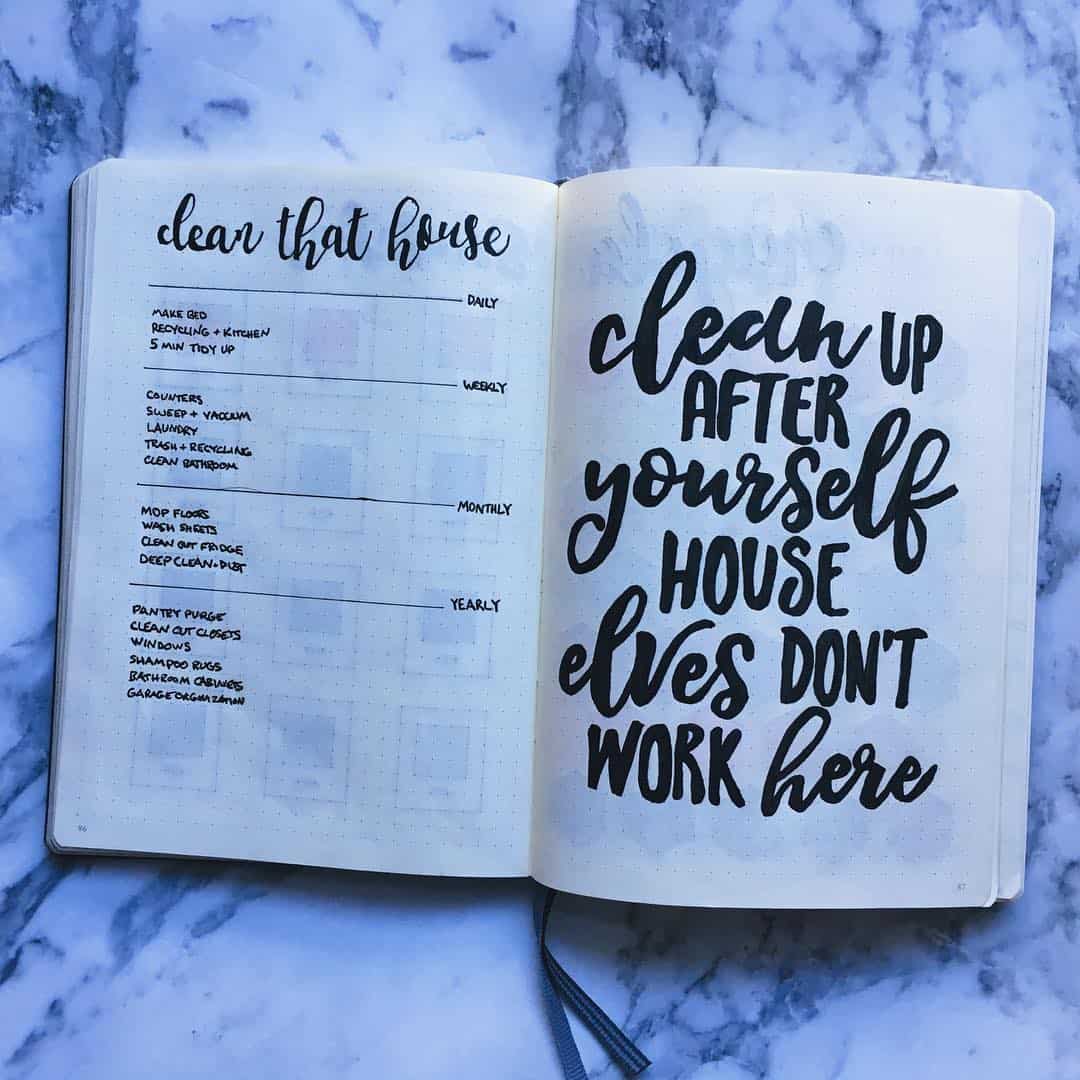 clean that house
DAILY
MAKE BED
RECYCLING + KITCHEN
5 MIN TIDY UP
WEEKLY
COUNTERS
SWEEP + VACCUM
LAUNDRY
TRASH + RECYCLING
CLEAN BATHROOM
MONTHLY
MOP FLOORS
WASH SHEETS
CLEAN OUT FRIDGE
DEEP CLEAN + DUST
YEARLY
PANTRY PURGE
CLEAN OUT CLOSETS
WINDOWS
SHAMPOO RUGS
BATHROOM CABINETS
GARAGE ORGNIZATION
86
clean UP
AFTER
yourself
HOUSE
elves DON'T
WORK here
87